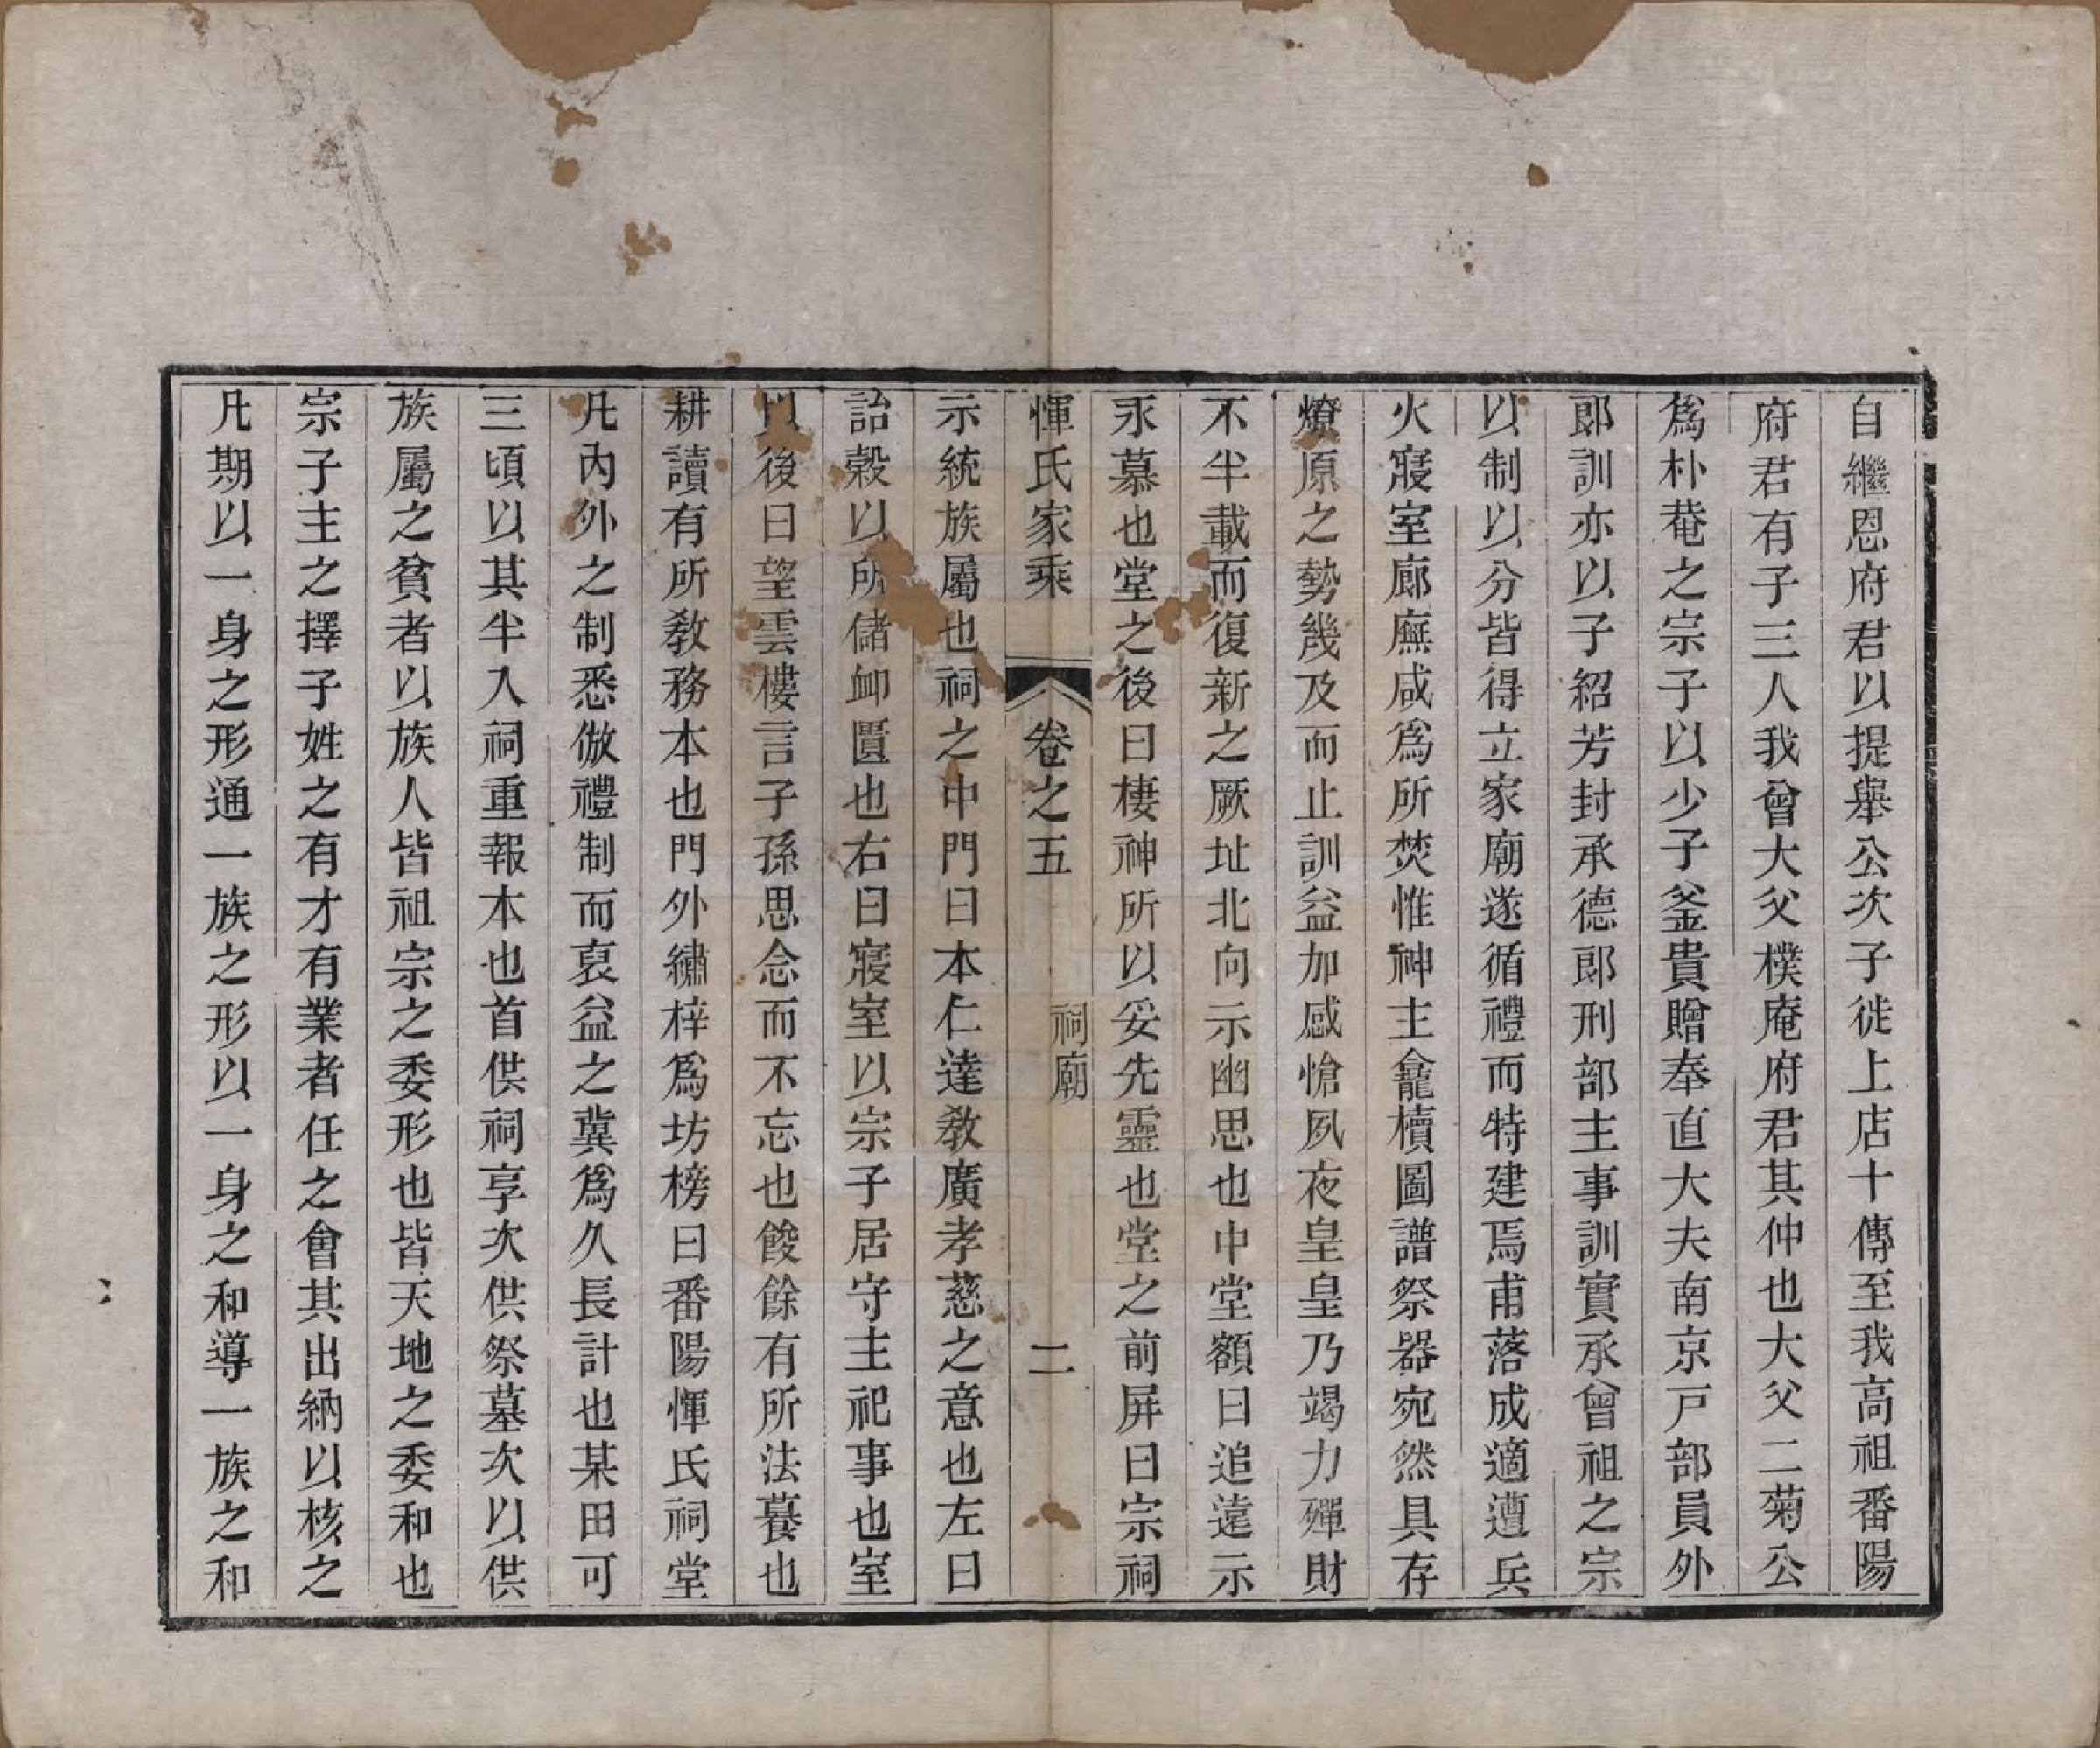 自繼恩府君以提舉公次子徙上店十傳至我高祖番陽
府君有子三人我曾大父樸庵府君其仲也大父二菊公
爲朴菴之宗子以少子釜貴贈奉直大夫南京戸部員外
郎訓亦以子紹芳封承德郎刑部主事訓實承曾祖之宗
以制以分皆得立家廟遂循禮而特建焉甫落成適遭兵
火寢室廊廡咸爲所焚惟神主龕櫝圖譜祭器宛然具存
燎原之勢幾及而止訓益加感愴夙夜皇皇乃竭力殫財
不半載而復新之厥址北向示幽思也中堂額曰追遠示
永慕也堂之後曰棲神所以妥先靈也堂之前屏曰宗祠
惲氏家乘 卷之五 祠廟 二
示統族屬也祠之中門曰本仁達教廣孝慈之意也左曰
詒穀以所儲卹匱也右曰寢室以宗子居守主祀事也室
以後曰望雲樓言子孫思念而不忘也餕餘有所法養也
耕讀有所教務本也門外繡梓爲坊榜曰番陽惲氏祠堂
凡內外之制悉倣禮制而裒益之冀爲久長計也某田可
三頃以其半入祠重報本也首供祠享次供祭墓次以供
族屬之貧者以族人皆祖宗之委形也皆天地之委和也
宗子主之擇子姓之有才有業者任之會其出納以核之
凡期以一身之形通一族之形以一身之和導一族之和